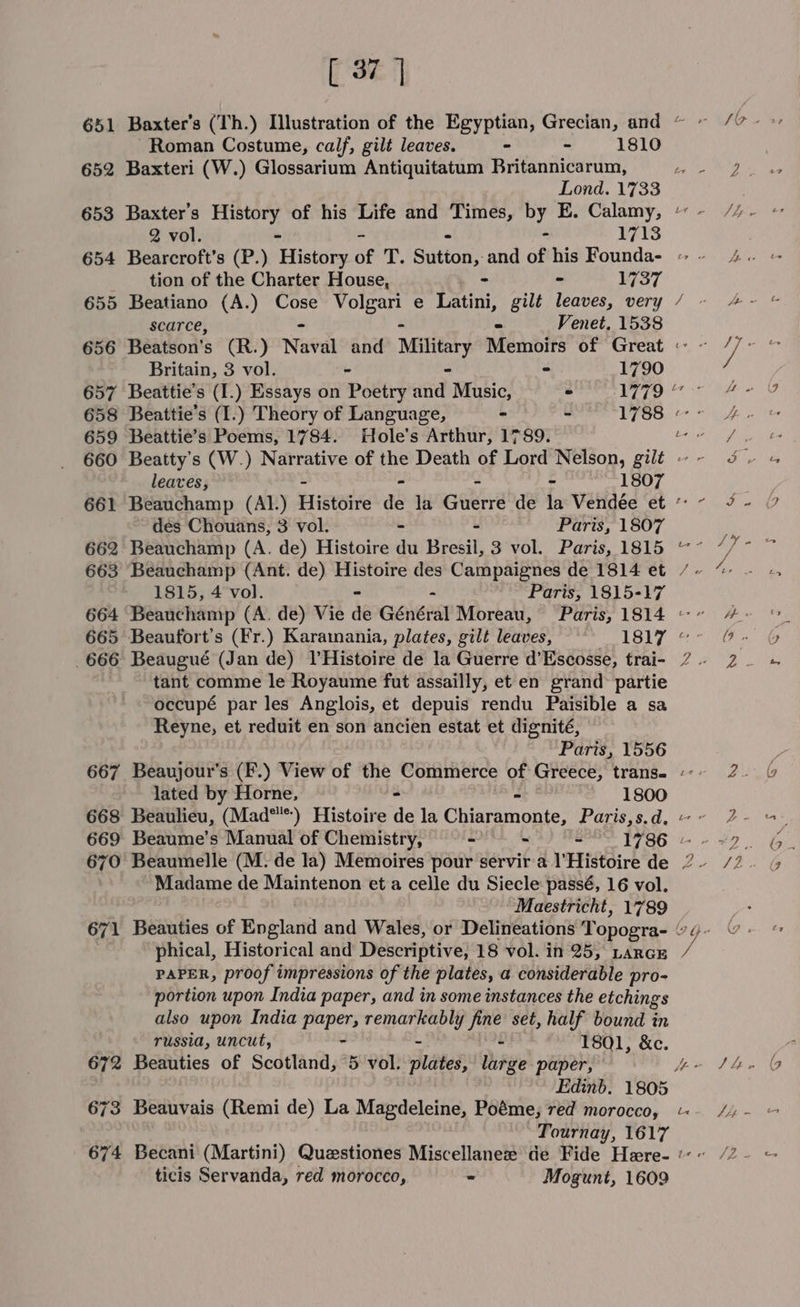 [ 37 ]
651 Baxter's (Th.) Illustration of the Egyptian, Grecian, and
Roman Costume, calf, gilt leaves. - - 1810
652 Baxteri (W.) Glossarium Antiquitatum Britannicarum,
Lond. 1733
653 Baxter's History of his Life and Times, by E. Calamy,
2 vol. - - - - 1713
654 Bearcroft's (P.) History of T. Sutton, and of his Founda-
tion of the Charter House, - - 1737
655 Beatiano (A.) Cose Volgari e Latini, gilt leaves, very
scarce, - - - Venet. 1538
656 Beatson's (R.) Naval and Military Memoirs of Great
Britain, 3 vol. - - - 1790
657 Beattie's (I.) Essays on Poetry and Music, - 1779
658 Beattie's (I.) Theory of Language, - - 1788
659 Beattie's Poems, 1784. Hole's Arthur, 1789.
660 Beatty's (W.) Narrative of the Death of Lord Nelson, gilt
leaves, - - - - 1807
661 Beauchamp (Al.) Histoire de la Guerre de la Vendée et
des Chouans, 3 vol. - - Paris, 1807
662 Beauchamp (A. de) Histoire du Bresil, 3 vol. Paris, 1815
663 Beauchamp (Ant. de) Histoire des Campaignes de 1814 et
1815, 4 vol. - - Paris, 1815-17
664 Beauchamp (A. de) Vie de Général Moreau, Paris, 1814
665 Beaufort's (Fr.) Karamania, plates, gilt leaves, 1817
666 Beaugué (Jan de) l'Histoire de la Guerre d'Escosse, trai-
tant comme le Royaume fut assailly, et en grand partie
occupé par les Anglois, et depuis rendu Paisible a sa
Reyne, et reduit en son ancien estat et dignité,
Paris, 1556
667 Beaujour's (F.) View of the Commerce of Greece, trans-
lated by Horne, - - 1800
668 Beaulieu, (Mad^elle.) Histoire de la Chiaramonte, Paris, s.d.
669 Beaume's Manual of Chemistry, - - - 1786
670 Beaumelle (M. de la) Memoires pour servir a l'Histoire de
Madame de Maintenon et a celle du Siecle passé, 16 vol.
Maestricht, 1789
671 Beauties of England and Wales, or Delineations Topogra-
phical, Historical and Descriptive, 18 vol. in 25, LARGE
PAPER, proof impressions of the plates, a considerable pro-
portion upon India paper, and in some instances the etchings
also upon India paper, remarkably fine set, half bound in
russia, uncut, - - - 1801, &c.
672 Beauties of Scotland, 5 vol. plates, large paper,
Edinb. 1805
673 Beauvais (Remi de) La Magdeleine, Poême, red morocco,
Tournay, 1617
674 Becani (Martini) Quæstiones Miscellaneæ de Fide Hære-
ticis Servanda, red morocco, - Mogunt, 1609